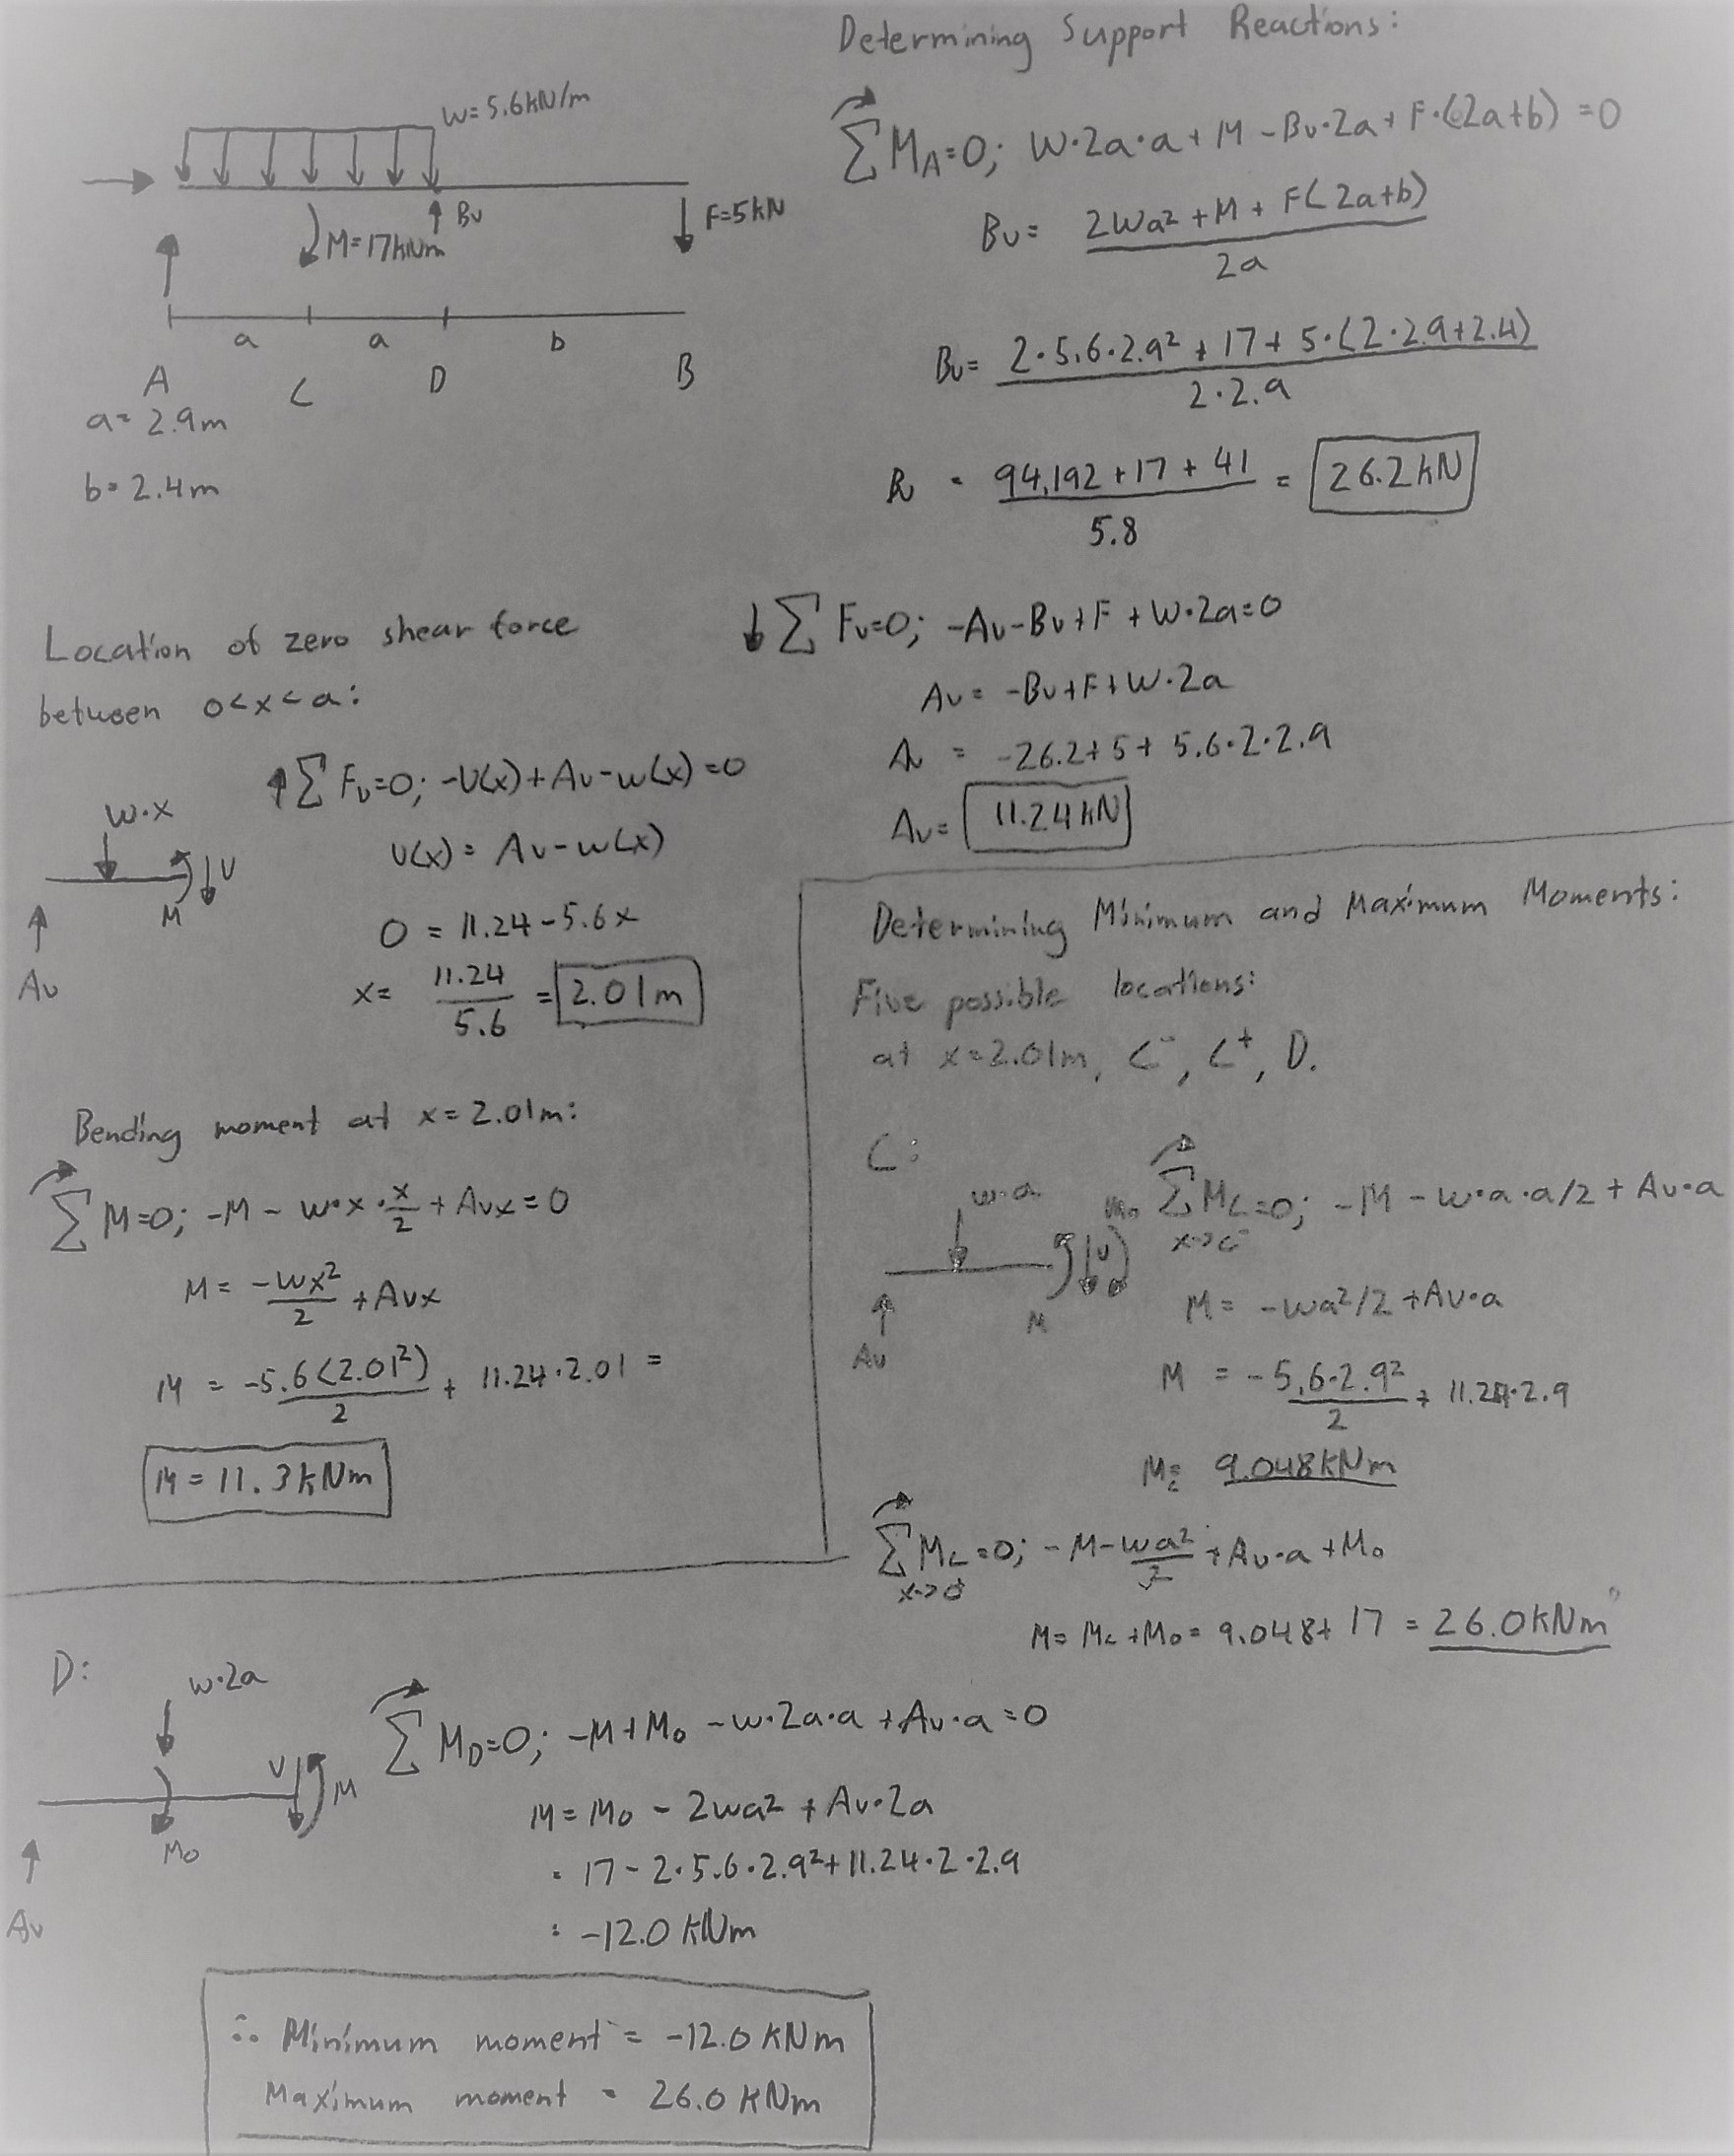 Determining Support Reactions:
w=5.6kN/m
Bv
M=17kNm
F=5kN
a a b
A C D B
a=2.9m
b=2.4m
∑MA=0; W·2a·a+M-Bv·2a+F·(2a+b)=0
Bv= 2Wa²+M+F(2a+b)
2a
Bv= 2·5.6·2.9²+17+5·(2·2.9+2.4)
2·2.9
Bv = 94.192+17+41 = 26.2kN
5.8
↓∑Fv=0; -Av-Bv+F+W·2a=0
Av= -Bv+F+W·2a
Av = -26.2+5+5.6·2·2.9
Av= 11.24kN
Location of zero shear force
between 0<x<a:
↑∑Fv=0; -V(x)+Av-w(x)=0
V(x)= Av-w(x)
0 = 11.24-5.6x
x= 11.24 = 2.01m
5.6
w·x
V
M
Av
Bending moment at x=2.01m:
∑M=0; -M - w·x·x/2 + Avx=0
M= -wx²/2 + Avx
M = -5.6(2.01²)/2 + 11.24·2.01 =
M=11.3kNm
Determining Minimum and Maximum Moments:
Five possible locations:
at x=2.01m, C⁻, C⁺, D.
C:
w·a
Mo
V
M
Av
∑MC=0; -M-w·a·a/2+Av·a
x->C⁻
M= -wa²/2+Av·a
M = -5.6·2.9²/2 + 11.24·2.9
Mc= 9.048kNm
∑Mc=0; -M-wa²/2+Av·a+Mo
M= Mc+Mo= 9.048+17 = 26.0kNm
D:
w·2a
V
M
Mo
Av
∑MD=0; -M+Mo-w·2a·a+Av·a=0
M=Mo - 2wa²+Av·2a
= 17-2·5.6·2.9²+11.24·2·2.9
= -12.0kNm
∴ Minimum moment = -12.0kNm
Maximum moment = 26.0kNm